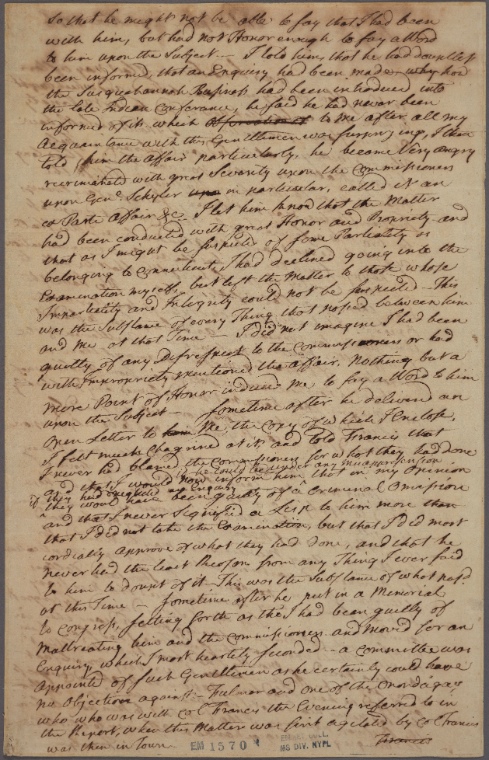 So that he might not be able to say that I had been
with him, but had not Honor enough to say a Word
to him upon the Subject — I told him, that he had doubtless
been informed that an Enquiry had been made why how
the Susquehannah Business had been introduced into
the late Indian Conferance, he said he had never been
informed of it which to me after all my
Acquaintance with the Gentlemen was surprising, I then
told him the Affair particularly, he became Very angry
recriminated with great Severity upon the Commissioners
upon Genl Schyler in particular, called it an
ex Parte Affair &c. I let him know that the Matter
had been conducted with great Honor and Propriety and
that as I might be suspected of some Partiality as
belonging to Connecticut, I had declined going into the
Examination myself, but left the Matter to those whose
Impartiality and Integrity could not be suspected — This
was the Substance of every Thing that passed between him
and me at that Time — I did not imagine I had been
guilty of any Disrespect to the Commissioners or had
with impropriety mentioned the Affair. Nothing but a
mere Point of Honor induced me to say a Word to him
upon the Subject — Sometime after he delivered an
Open Letter to Me, the Copy of which I Enclose,
I felt much Chagrined at it and told Francis that
I never had blamed the Commissioners for what they had done
and that I would now inform him that in my Opinion
if they had neglected an Enquiry
they would have been guilty of a Criminal Omission
and that I never Signified a Lisp to him more than
that I did not take the Examination, but that I did most
cordially approve of what they had done, and that he
never had the least Reason from any Thing I ever said
to him to doubt of it. This was the Substance of what pass'd
at this Time — Sometime after he put in a Memorial
to Congress, setting forth as tho I had been guilty of
Maltreating him and the Commissioners and moved for an
Enquiry which I most heartily seconded — a Committee was
appointed of such Gentlemen as he certainly could have
no Objections against — Fulmer and one of the
who was with Col Francis the Evening referred to in
the Report, when this Matter was first agitated by Col Francis
was then in Town
EM 1570
MS DIV. NYPL